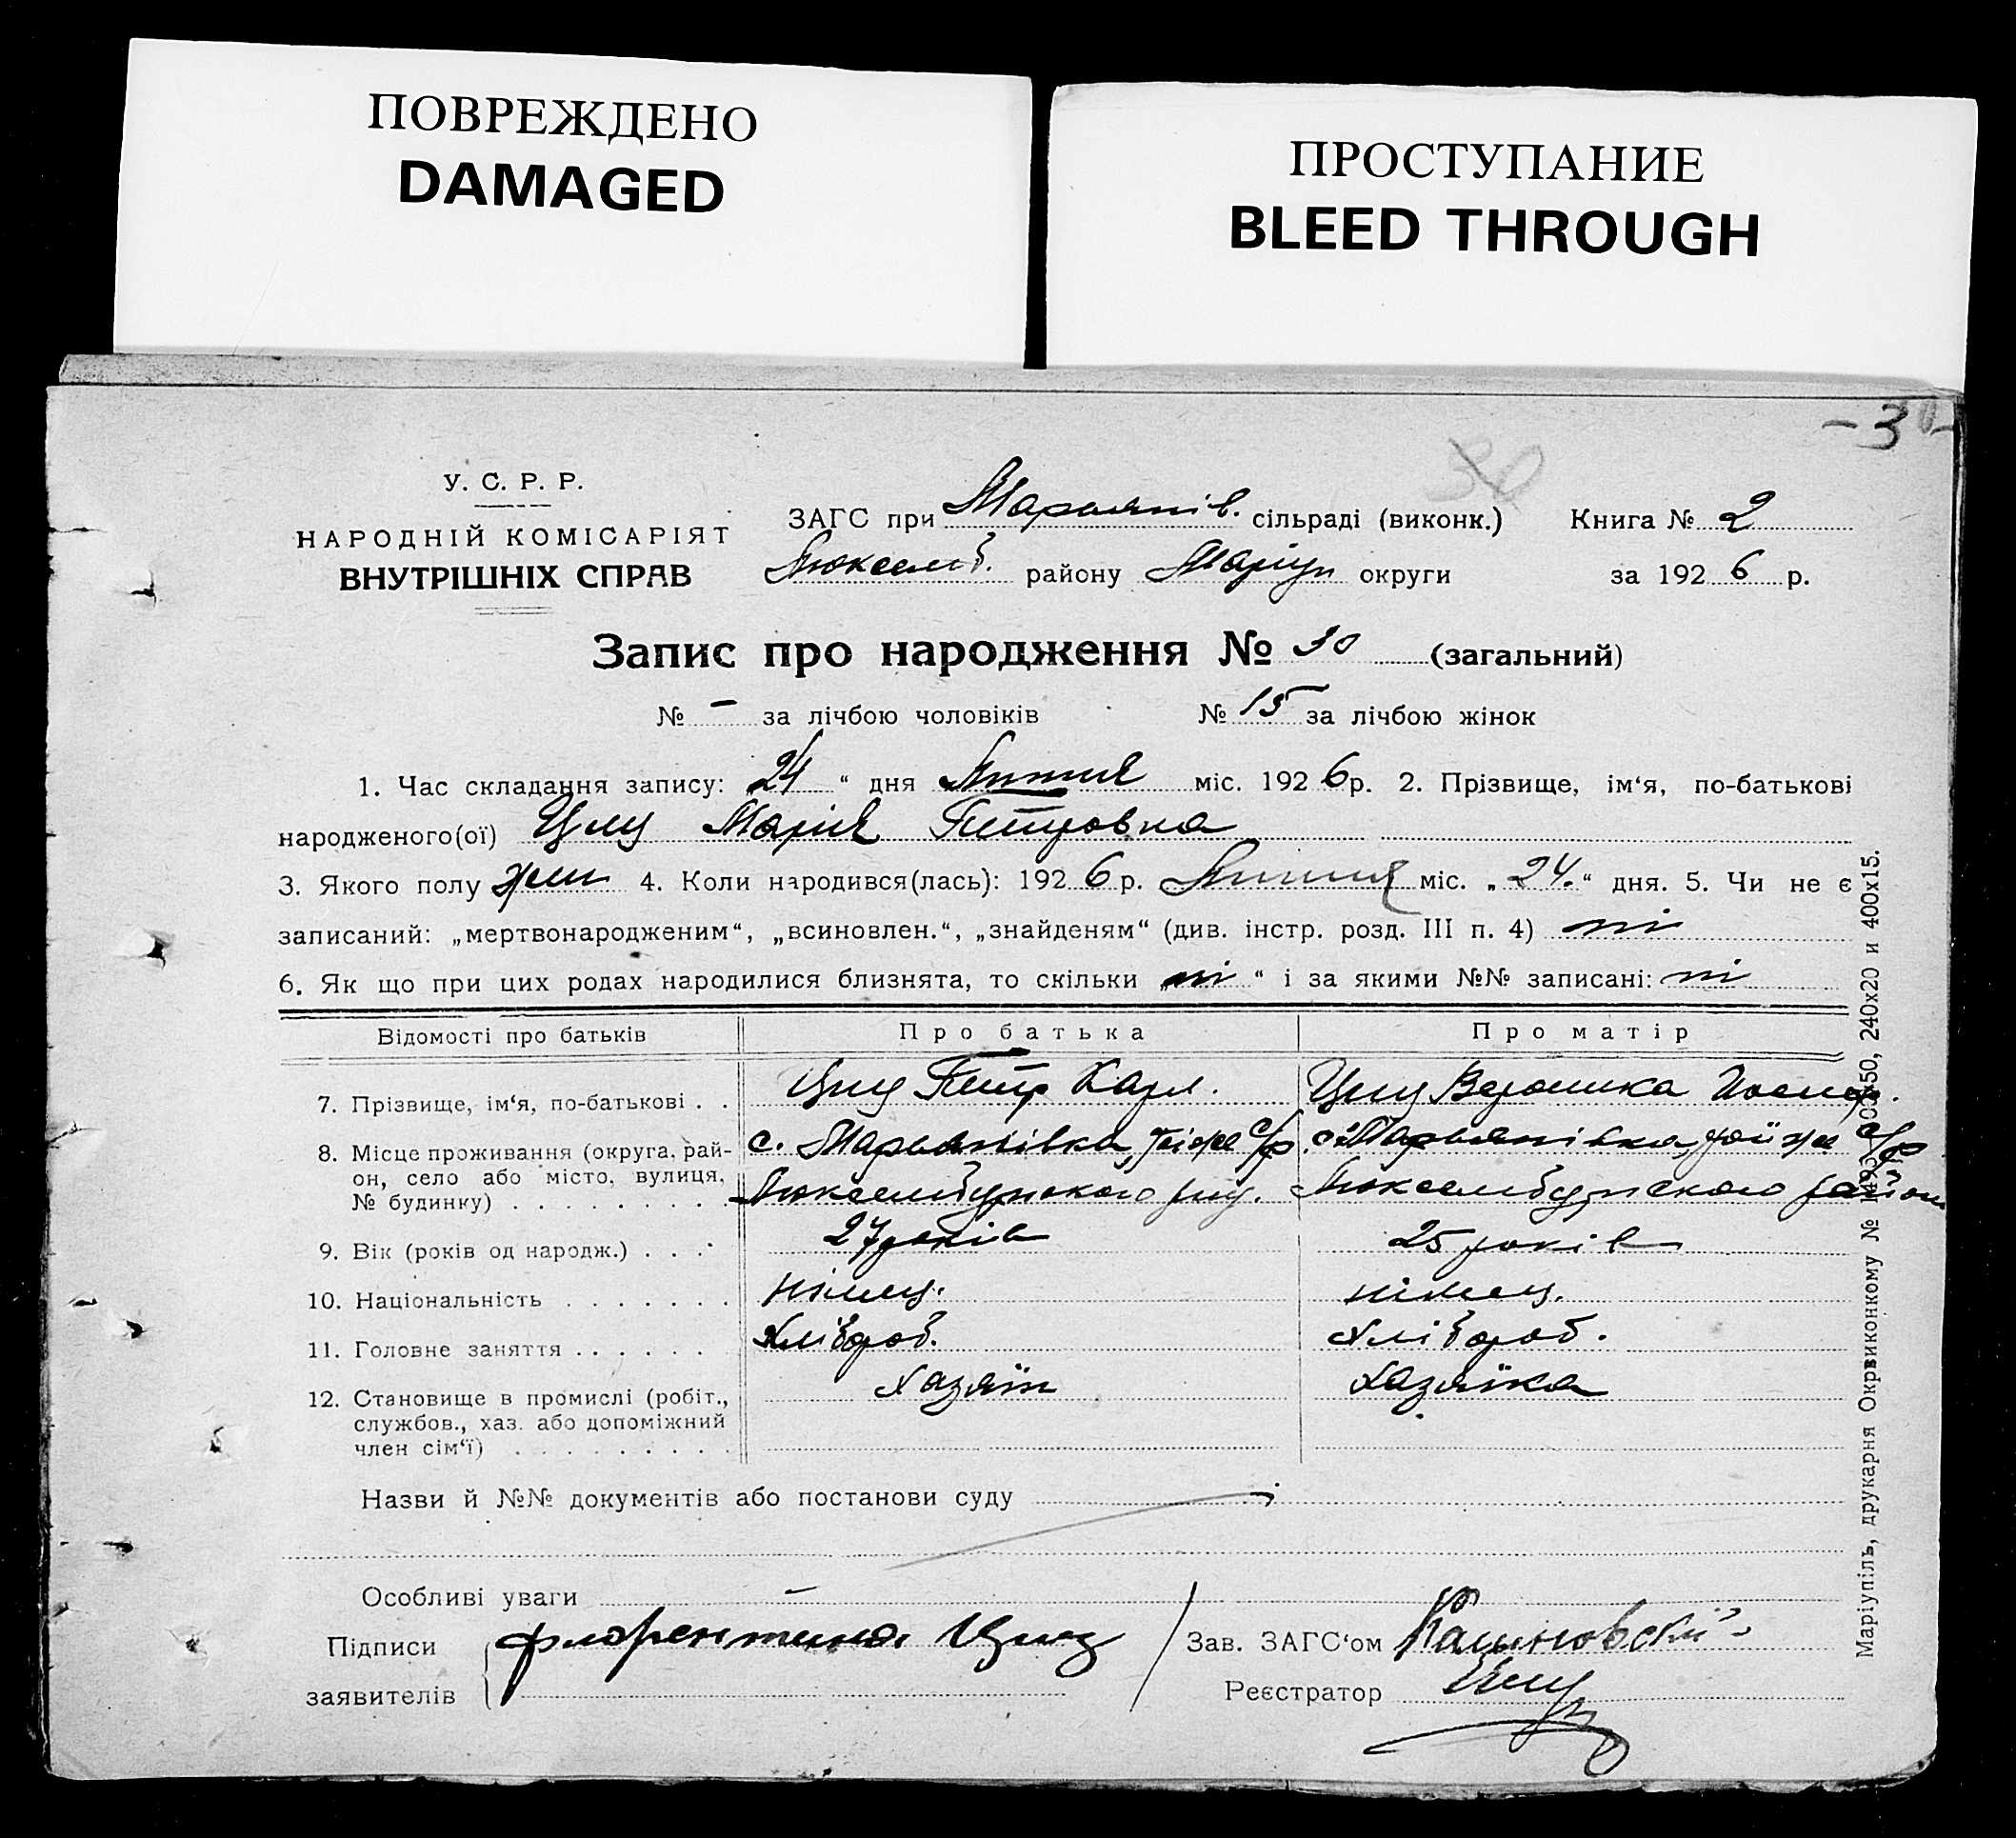 ПОВРЕЖДЕНО
DAMAGED
ПРОСТУПАНИЕ
BLEED THROUGH
-30-
30
У. С. Р. Р.
НАРОДНІЙ КОМІСАРІЯТ
ВНУТРІШНІХ СПРАВ
ЗАГС при Марьянів. сільраді (виконк.) Книга № 2
Люксемб. району Маріуп округи за 1926 р.
Запис про народження № 30 (загальний)
№ – за лічбою чоловіків № 15 за лічбою жінок
1. Час складання запису: „24“ дня міс. 1926 р. 2. Прізвище, ім‘я, по-батькові
народженого(ої) Марія Петровна
3. Якого полу жін 4. Коли народився(лась): 1926 р. міс. „24.“ дня. 5. Чи не є
записаний: „мертвонародженим“, „всиновлен.“, „знайденям“ (див. інстр. розд. III п. 4) ні
6. Як що при цих родах народилися близнята, то скільки „ні“ і за якими №№ записані: ні
Відомості про батьків Про батька Про матір
7. Прізвище, ім‘я, по-батькові . . Петр Карл. Вероника
8. Місце проживання (округа, рай-
он, село або місто, вулиця,
№ будинку) . . . . . . . . .
с. Марьянівка, тієже с/р.
Люксембурзького
с. Марьянівка, с/р
Люксембурзского район
9. Вік (років од народж.) . . . 27 років 25 років
10. Національність . . . . . . . німец. німец.
11. Головне заняття . . . . . . Хлібороб. Хлібороб.
12. Становище в промислі (робіт.,
службов., хаз. або допоміжний
член сім‘ї) . . . . . . . . .
Хазяїн Хазяїка
Назви й №№ документів або постанови суду
Особливі уваги –
Підписи
заявителів
Флорентина
Зав. ЗАГС‘ом Калиновский
Реєстратор
Маріупіль, друкарня Окрвиконкому № 240x20 и 400x15.